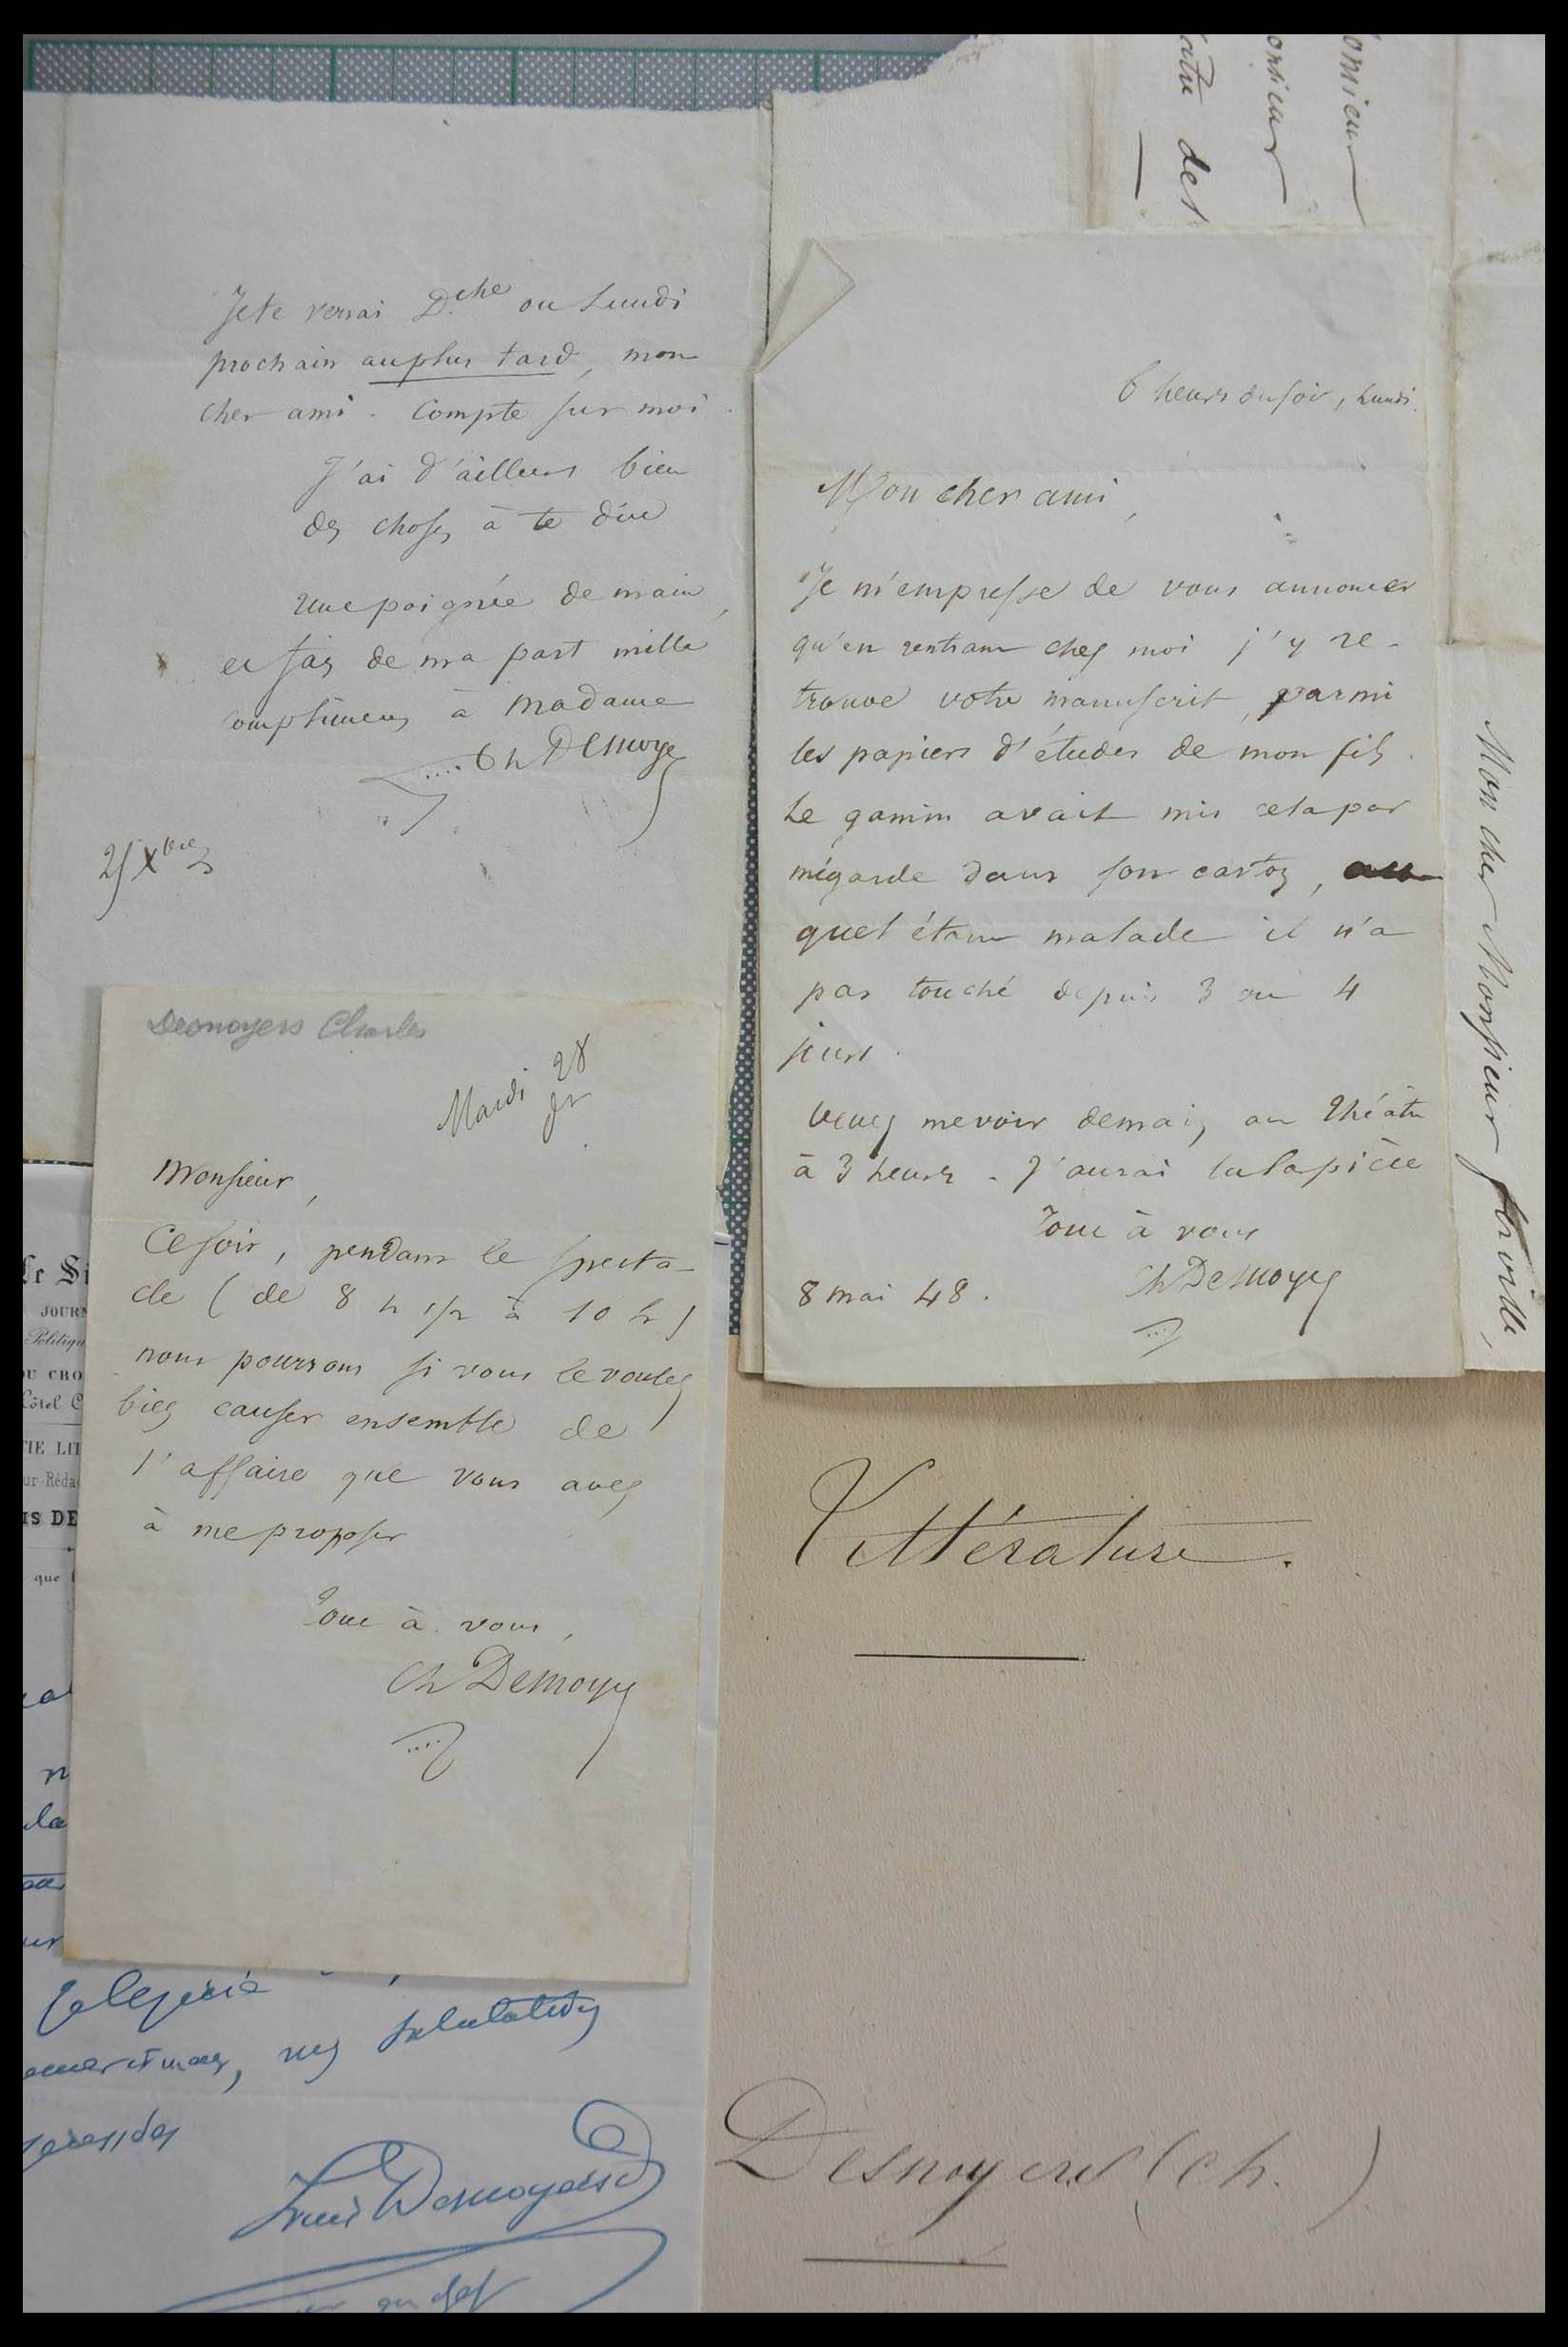 Je te verrai D.che ou Lundi
prochain au plus tard, mon
cher ami. Compte sur moi.
J'ai d'ailleurs bien
des choses à te dire
Une poignée de main,
et fais de ma part mille
complimens à Madame
Ch Desnoyers
25 Xbre
Desnoyers Charles
Mardi 28
Monsieur,
Ce soir, pendant le specta-
cle (de 8 h 1/2 à 10 h)
nous pourrons si vous le voulez
bien causer ensemble de
l'affaire que vous avez
à me proposer
Tout à vous,
Ch Desnoyers
6 heures du soir, Lundi.
Mon cher ami,
Je m'empresse de vous annoncer
qu'en rentrant chez moi j'y re-
trouve votre manuscrit, parmi
les papiers d'études de mon fils.
Le gamin avait mis cela par
mégarde dans son carton, au
quel étant malade il n'a
pas touché depuis 3 ou 4
jours.
Venez me voir demain, au Théâtre
à 3 heures. J'aurai lu la pièce
Tout à vous
Ch Desnoyers
8 mai 48.
omieur
onsieur
atre des
Mon cher Monsieur
Le Si
JOURN
Politiqu
DU CRO
Côtel C
TIE LIT
ur-Réda
IS DE
que
la
mes salutations
Louis Desnoyers
en chef
Littérature.
Desnoyers (Ch.)